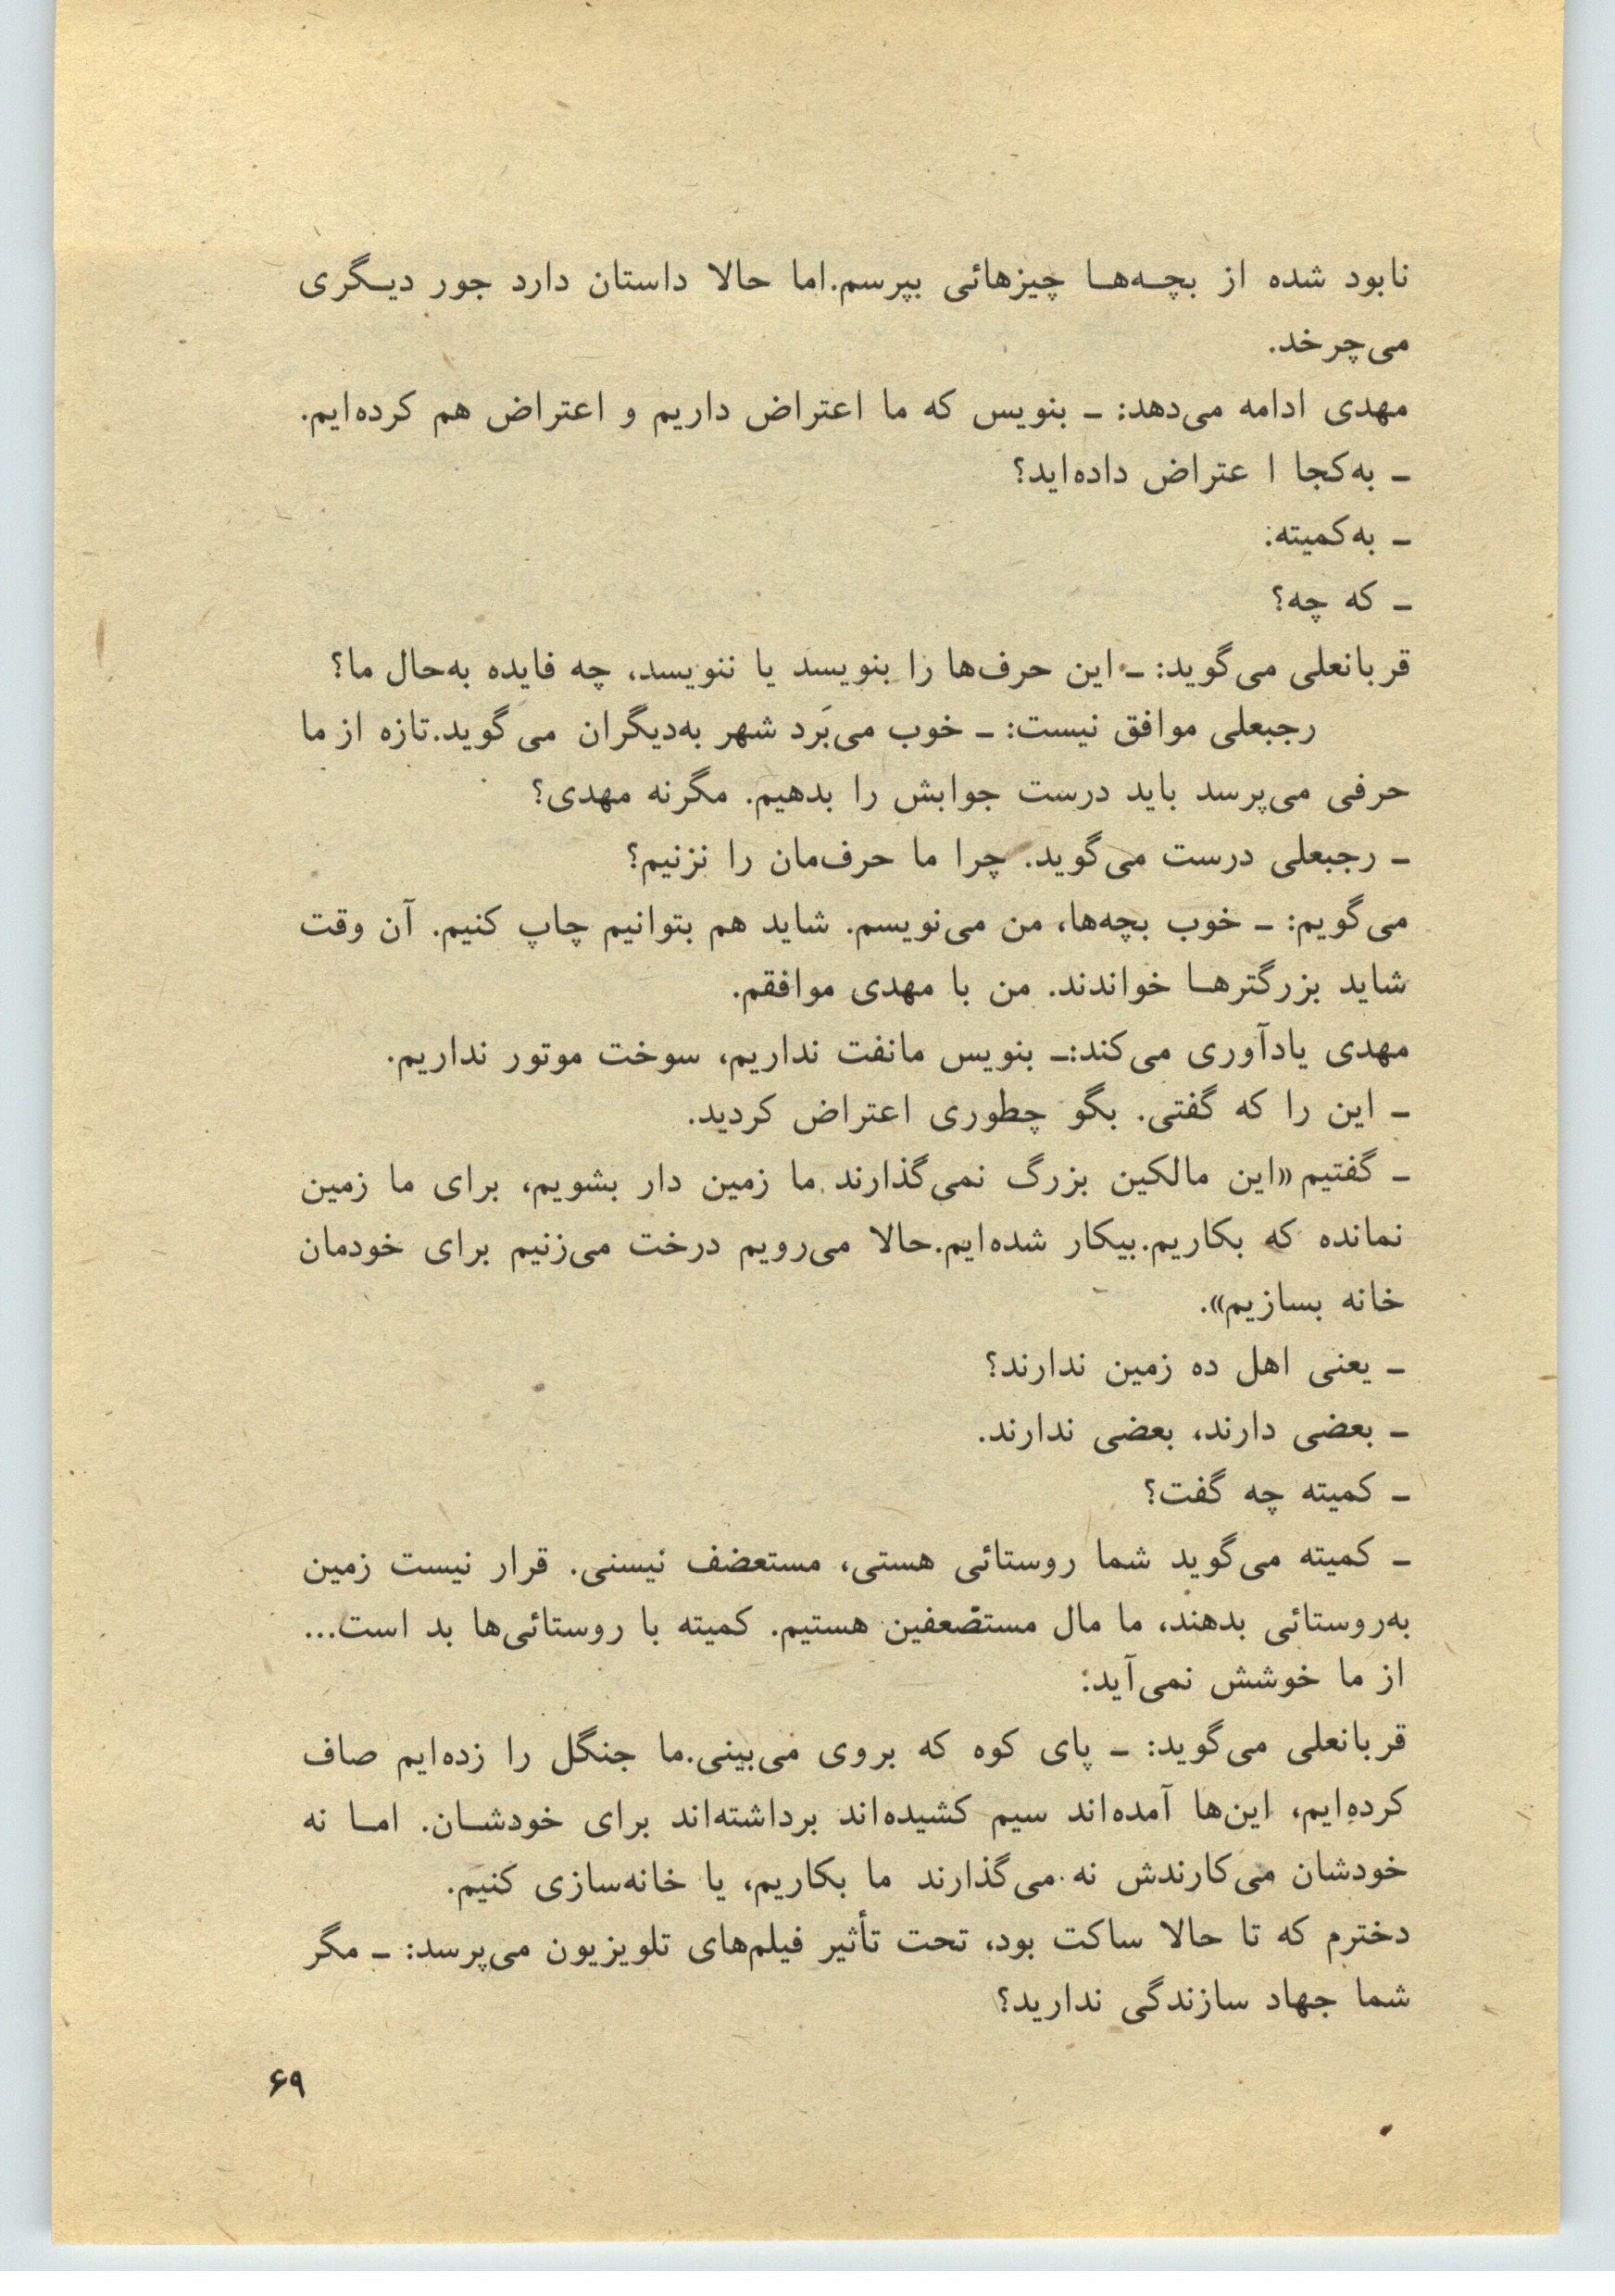 نابود شده از بچه‌ها چیزهائی بپرسم.اما حالا داستان دارد جور دیگری
می‌چرخد.
مهدی ادامه می‌دهد: ـ بنویس که ما اعتراض داریم و اعتراض هم کرده‌ایم.
ـ به‌کجا ا عتراض داده‌اید؟
ـ به‌کمیته:
ـ که چه؟
قربانعلی می‌گوید: ـ این حرف‌ها را بنویسد یا ننویسد، چه فایده به‌حال ما؟
رجبعلی موافق نیست: ـ خوب می‌بَرد شهر به‌دیگران می‌گوید.تازه از ما
حرفی می‌پرسد باید درست جوابش را بدهیم. مگرنه مهدی؟
ـ رجبعلی درست می‌گوید. چرا ما حرف‌مان را نزنیم؟
می‌گویم: ـ خوب بچه‌ها، من می‌نویسم. شاید هم بتوانیم چاپ کنیم. آن وقت
شاید بزرگترها خواندند. من با مهدی موافقم.
مهدی یادآوری می‌کند:ـ بنویس مانفت نداریم، سوخت موتور نداریم.
ـ این را که گفتی. بگو چطوری اعتراض کردید.
ـ گفتیم «این مالکین بزرگ نمی‌گذارند ما زمین دار بشویم، برای ما زمین
نمانده که بکاریم.بیکار شده‌ایم.حالا می‌رویم درخت می‌زنیم برای خودمان
خانه بسازیم».
ـ یعنی اهل ده زمین ندارند؟
ـ بعضی دارند، بعضی ندارند.
ـ کمیته چه گفت؟
ـ کمیته می‌گوید شما روستائی هستی، مستعضف نیسنی. قرار نیست زمین
به‌روستائی بدهند، ما مال مستضعفین هستیم. کمیته با روستائی‌ها بد است...
از ما خوشش نمی‌آید:
قربانعلی می‌گوید: ـ پای کوه که بروی می‌بینی.ما جنگل را زده‌ایم صاف
کرده‌ایم، این‌ها آمده‌اند سیم کشیده‌اند برداشته‌اند برای خودشان. اما نه
خودشان می‌کارندش نه می‌گذارند ما بکاریم، یا خانه‌سازی کنیم.
دخترم که تا حالا ساکت بود، تحت تأثیر فیلم‌های تلویزیون می‌پرسد: ـ مگر
شما جهاد سازندگی ندارید؟
۶۹